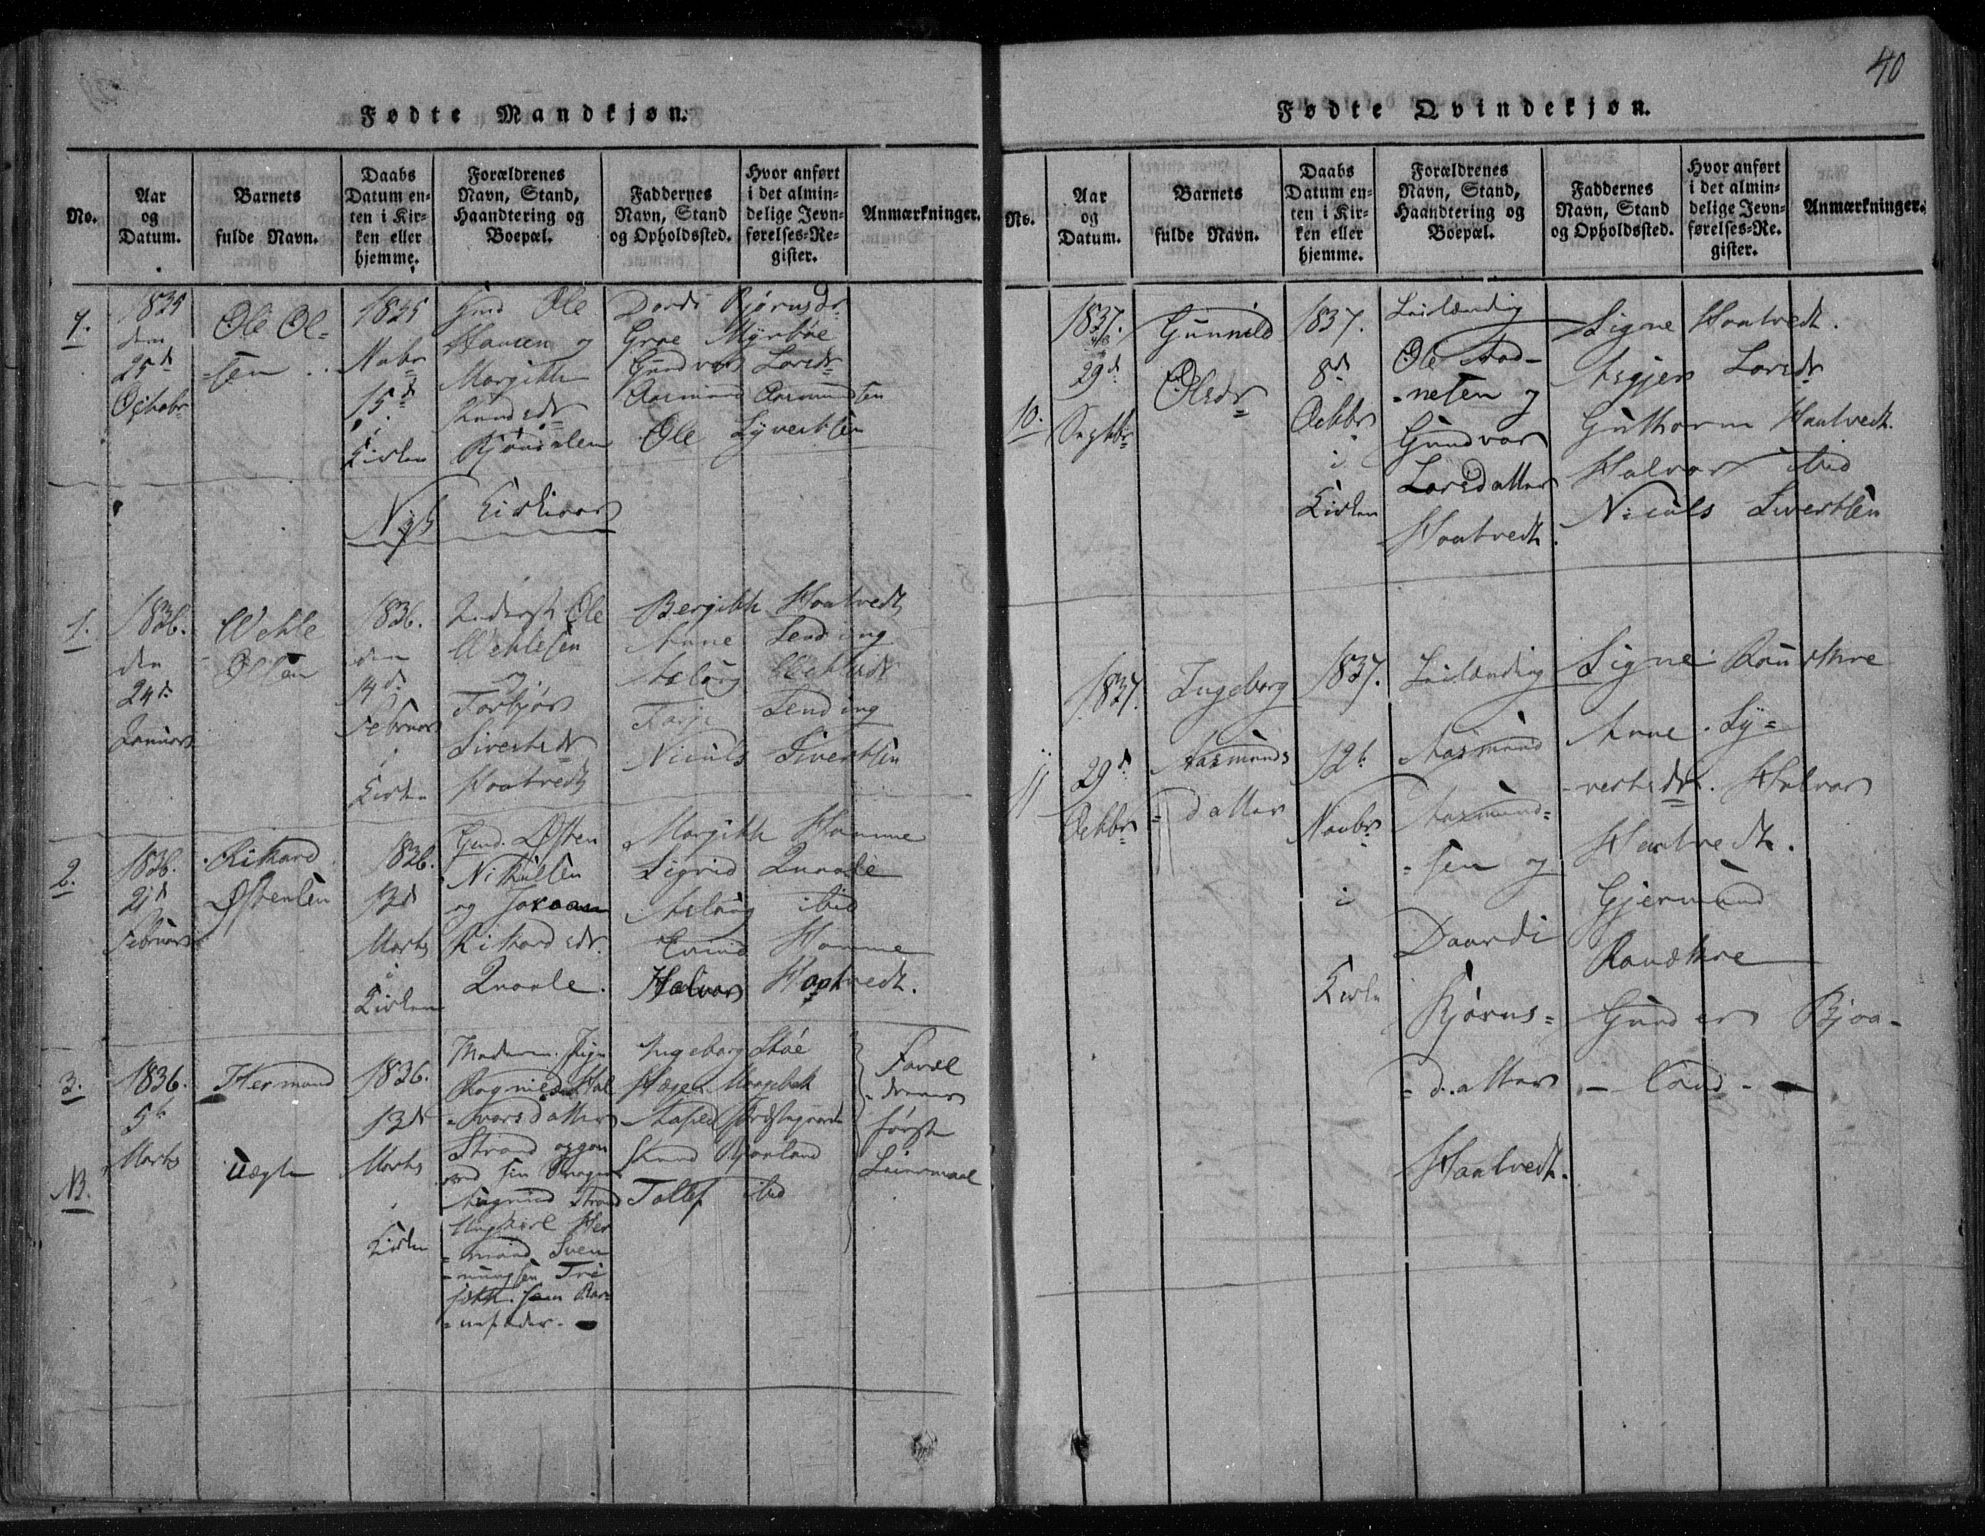 40
Fødte Mandkjøn.
No.
Aar
og
Datum.
Barnets
fulde Navn.
Daabs
Datum en-
ten i Kir-
ken eller
hjemme.
Forældrenes
Navn, Stand,
Haandtering og
Boepæl.
Faddernes
Navn, Stand
og Opholdssted.
Hvor anført
i det almin-
delige Jevn-
førelses-Re-
gister.
Anmærkninger.
7.
1835
den
25d
Octobr
Ole Ol-
-sen
1835
Nobr
15d
i
Kirken
Gmd Ole
Hansen og
Margith
Knudsdr
Bjøndalen
Dordi Bjørnsdr
Groe Myrboe
Gundvor Larsdr
Aasmund Aasmundsen
Ole Syvertsen
Nyt Kirkeaar
1.
1836.
den
24d
Januar
Wehle
Olsen
1836.
den
14d
Februar
i
Kirken
Inderst Ole
Wehlesen
og
Torbjør
Sivertsdr
Haatvedt
Bergith Haatvedt
Anne Lending
Aslaug Wehlesdr
Tarje Lending
Niculs Sivertsen
2.
1836.
21d
Februar
Rikard
Østensen
1836.
13d
Marts
i
Kirken
Gmd. Østen
Nikulsen
og Joraan
Rikardsdr.
Qvaale.
Margith Homme
Sigrid Qvaale
Aslaug ibid
Eivind Homme
Halvor Haatvedt.
3.
NB.
1836.
5t
Marts
Hermund
uægte
1836.
13d
Marts
i
Kirken
Moderen. Pige
Ragnild Hal
-vorsdatter
Strand opgav
ved sin Svoger
Aagmund Strand
Ungkarl Her
-mund Sven
-nungsen Tri
sæth. som Bar-
-nefader.
Ingeborg Stoe
Hægen Mogebæk
Aasled Præstegaarde
Knud Bjaaland
Tollef ibid
Foræl
-drenes
første
Leiermaal
Fødte Qvindekjøn.
No.
Aar
og
Datum.
Barnets
fulde Navn.
Daabs
Datum en-
ten i Kir-
ken eller
hjemme.
Forældrenes
Navn, Stand,
Haandtering og
Boepæl.
Faddernes
Navn, Stand
og Opholdssted.
Hvor anført
i det almin-
delige Jevn-
førelses-Re-
gister.
Anmærkninger.
10.
1837.
29d
Septbr
Gunnild
Olsdr
1837.
8d
Octbr
i
Kirken
Leilænding
Ole Aad-
-nesen og
Gundvor
Larsdatter
Haatvedt.
Signe Haatvedt.
Asgjer Larsdr
Guthorm Haatvedt.
Halvor ibid
Niculs Sivertsen
11
1837.
29d
Octbr
Ingeborg
Aasmunds
-datter
1837.
12t
Novbr
i
Kirken
Leilænding
Aasmund
Aasmund-
-sen og
Daardi
Bjørns-
-datter
Haatvedt.
Signe
Anne Sy-
-vertsdr. Halvor
Haatvedt.
Gjermund
Gunder Bjaa-
-land.